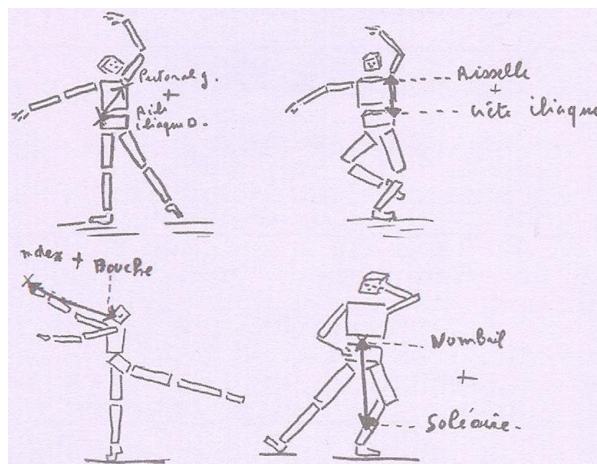 Pectoral g.
+
Aile
iliaque D.
Aisselle
+
Crête iliaque
index + Bouche
Nombril
+
Soléaire.